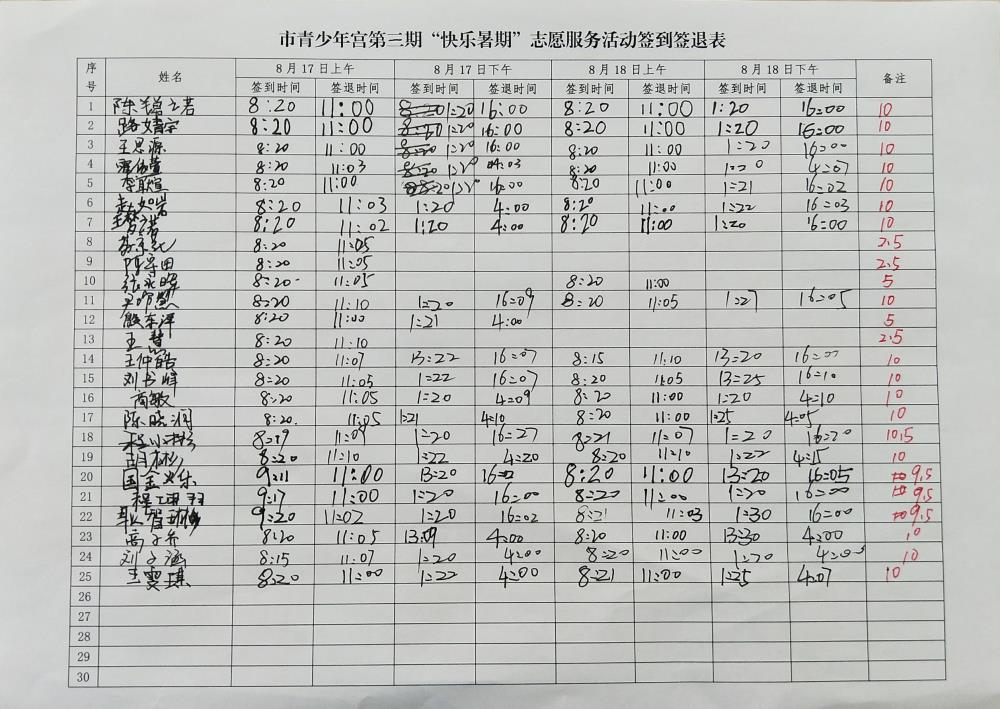 市青少年宫第三期“快乐暑期”志愿服务活动签到签退表
序号 姓名 8月17日上午 8月17日下午 8月18日上午 8月18日下午 备注
签到时间 签退时间 签到时间 签退时间 签到时间 签退时间 签到时间 签退时间
1 8:20 11:00 1:20 16:00 8:20 11:00 1:20 16:00 10
2 8:20 11:00 1:20 16:00 8:20 11:00 1:20 16:00 10
3 王思源 8:20 11:00 1:20 16:00 8:20 11:00 1:20 16:00 10
4 8:20 11:03 1:20 8:20 11:00 4:07 10
5 8:20 11:00 16:00 8:20 11:00 1:21 16:02 10
6 8:20 11:03 1:20 4:00 8:20 11:00 1:22 16:03 10
7 8:20 11:02 1:20 4:00 8:20 11:00 1:20 16:00 10
8 8:20 11:05 2.5
9 8:20 11:05 2.5
10 8:20 11:05 8:20 11:00 5
11 8:20 11:10 1:20 16:09 8:20 11:05 1:27 16:05 10
12 8:20 11:00 1:21 4:00 5
13 王慧 8:20 11:10 2.5
14 王仲皓 8:20 11:07 13:22 16:07 8:15 11:10 13:20 10
15 8:20 11:05 1:22 16:07 8:20 11:05 13:25 16:10 10
16 8:20 11:05 1:20 4:09 8:20 11:00 1:20 4:10 10
17 陈晓润 8:20 11:05 1:21 4:10 8:20 11:00 1:25 4:05 10
18 8:19 11:09 1:20 16:27 8:21 11:07 1:20 10.5
19 8:20 11:10 1:22 4:20 8:20 11:10 1:22 4:15 10
20 9:11 11:00 13:20 8:20 11:00 13:20 16:05 9.5
21 9:17 11:00 1:20 16:00 8:20 11:00 1:20 16:00 9.5
22 9:20 11:02 1:20 16:02 8:21 11:03 1:30 16:00 9.5
23 8:20 11:05 13:09 4:00 8:20 11:00 13:30 4:00 10
24 刘子涵 8:15 11:07 1:20 4:00 8:20 11:00 1:20 4:00 10
25 王雯琪 8:20 11:00 1:22 4:00 8:21 11:00 1:25 4:07 10
26
27
28
29
30